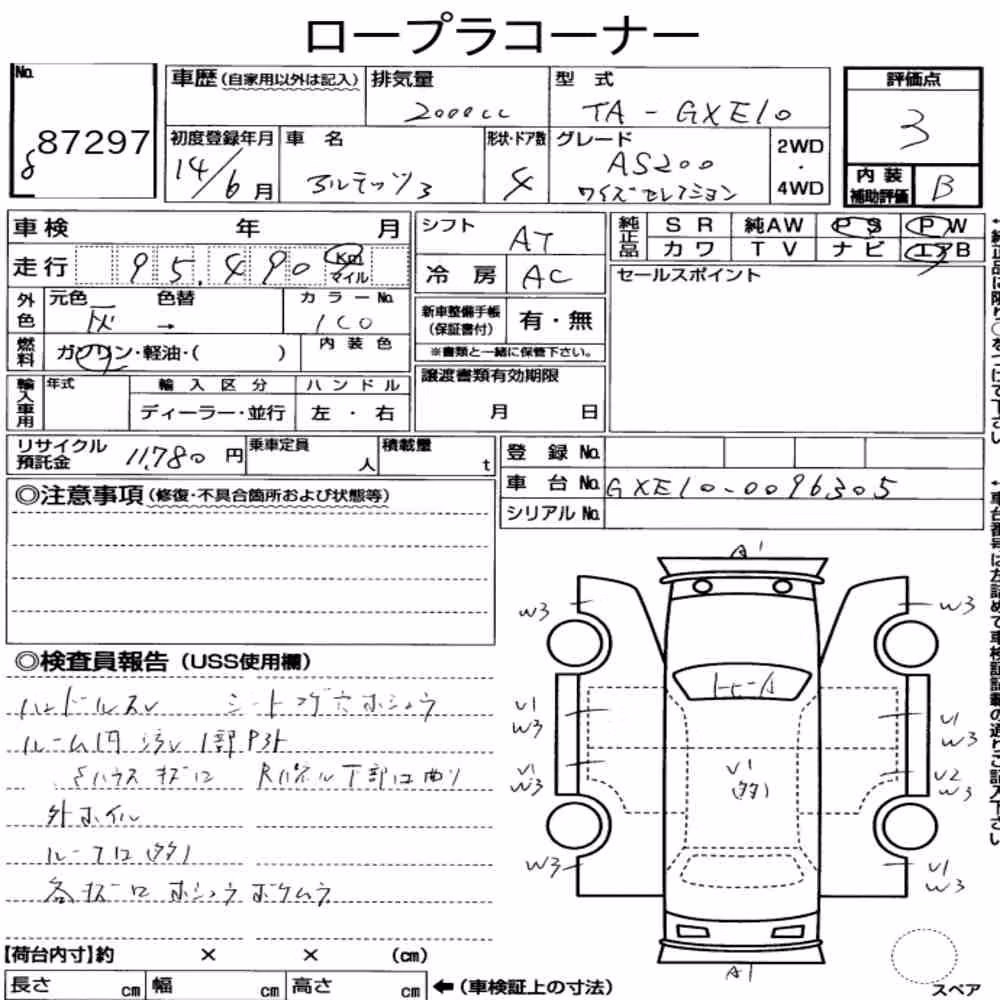 ロープラコーナー
No.
87297
車歴(自家用以外は記入)
排気量
2000cc
型式
TA-GXE10
評価点
3
初度登録年月
14/6月
車名
アルテッツァ
形状・ドア数
4
グレード
AS200
ワイズセレクション
2WD
・
4WD
内装
補助評価
B
車検 年 月
シフト
AT
純正品
SR 純AW PS PW
カワ TV ナビ エアB
走行 95,490 Km
マイル
冷房 AC
セールスポイント
外色
元色 色替
灰 →
カラーNo.
1C0
新車整備手帳
(保証書付)
有・無
※書類と一緒に保管下さい。
燃料
ガソリン・軽油・( )
内装色
譲渡書類有効期限
月 日
輸入車用
年式
輸入区分
ハンドル
ディーラー・並行
左・右
リサイクル
預託金
11,780円
乗車定員
人
積載量
t
登録No.
車台No. GXE10-0096305
シリアルNo.
◎注意事項(修復・不具合箇所および状態等)
◎検査員報告(USS使用欄)
ハンドルスレ シートコゲ穴ホシュウ
ルーム内汚レ 1部
下部凹曲り
外ホイル
ルーフ凹(多)
各キズ凹 ホシュウボケムラ
A1
W3
W3
U1
W3
U1
W3
U1
W3
U2
W3
U1
(多)
W3
U1
W3
A1
スペア
【荷台内寸】約 × × (cm)
長さ cm 幅 cm 高さ cm ←(車検証上の寸法)
↑純正品に限り○をつけて下さい
↑車台番号は左詰めで車検証記載の通りご記入下さい